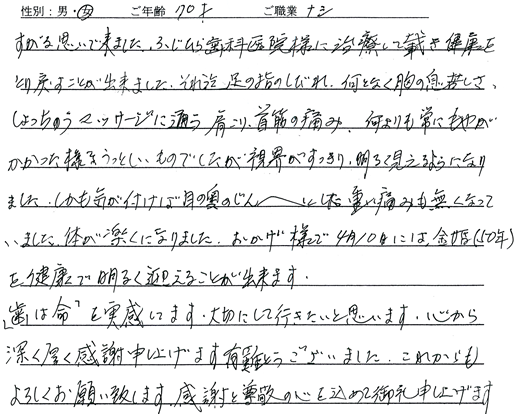 性別：男・女 ご年齢 70才 ご職業 ナシ
すがる思いで来ました。ふじむら歯科医院様に治療して戴き健康を
とり戻すことが出来ました。それ迄足の指のしびれ、何となく胸の息苦しさ、
しょっちゅうマッサージに通う肩こり、首筋の痛み、何よりも常にもやが
かかった様なうっとしいものでしたが視界がすっきり、明るく見えるようになり
ました。しかも気が付けば目の奥のじん〜〜とした重い痛みも無くなって
いました。体が楽になりました。おかげ様で4月10日には、金婚(50年)
を健康で明るく迎えることが出来ます。
「歯は命」を実感してます。大切にして行きたいと思います。心から
深く厚く感謝申し上げます有難とうございました。これからも
よろしくお願い致します。感謝と尊敬の心を込めて御礼申し上げます